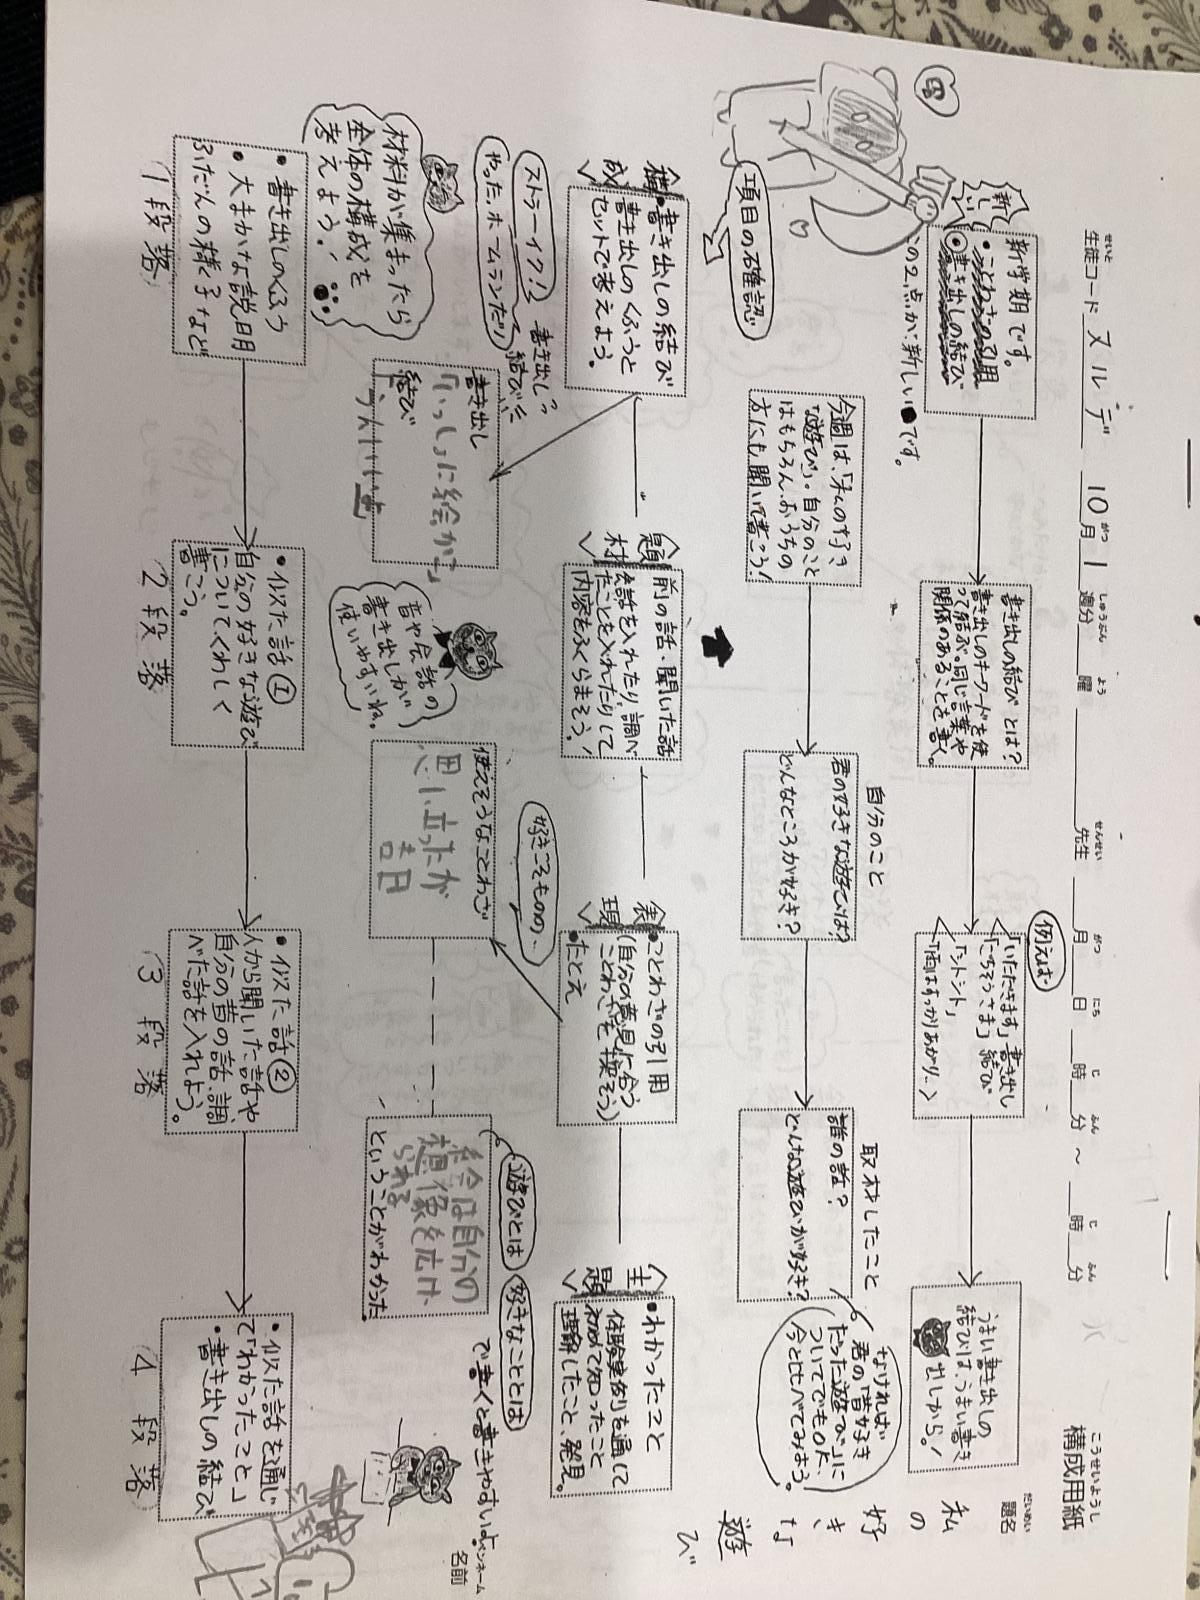 構成用紙
こうせいようし
生徒コード ヌルデ 10月1週分 曜 先生 月 日 時 分 ~ 時 分
せいと がつ しゅうぶん よう せんせい がつ にち じ ふん じ ふん
題名
だいめい
私の好きな遊び
ペンネーム
名前
新しい
新学期です。
・ことわざの引用
・書き出しの結び
この2点が新しい です。
書き出しの結び とは?
書き出しのキーワードを使
って結ぶ。同じ言葉や
関係のあることを書く。
例えば
「いただきます」書き出し
「ごちそうさま」結び
うまい書き出しの
結びは、うまい書き
出しから!
今週は、「私の好き
な遊び」。自分のこと
はもちろん、おうちの
方にも聞いて書こう!
自分のこと
君の好きな遊びは?
どんなところが好き?
取材したこと
誰の話?
どんな遊びが好き?
なければ
君の「昔好き
だった遊び」に
ついてでもOK、
今と比べてみよう。
項目の確認
構成
・書き出しの結び
書き出しのくふうと
セットで考えよう。
題材
前の話・聞いた話
会話を入れたり、調べ
たことを入れたりして
内容をふくらまそう!
表現
・ことわざの引用
(自分の意見に合う
ことわざを探そう)
・たとえ
主題
・わかったこと
体験実例を通して
初めて知ったこと
理解したこと、発見。
ストラーイク!
やった、ホームランだ!
書き出し?
結び?
書き出し
結び
音や会話の
書き出しが
使いやすいね。
好きこそものの、
使えそうなことわざ
思い立ったが
吉日
遊びとは
好きなこととは
で書くと書きやすいよ
絵は自分の
想像を広げ
られる
ということがわかった
材料が集まったら
全体の構成を
考えよう!
・書き出しのくふう
・大まかな説明
ふだんの様子など
1段落
・似た話①
自分の好きな遊び
についてくわしく
書こう。
2段落
・似た話②
人から聞いた話や
自分の昔の話、調
べた話を入れよう。
3段落
・似た話を通じ
て「わかったこと」
・書き出しの結び
4段落